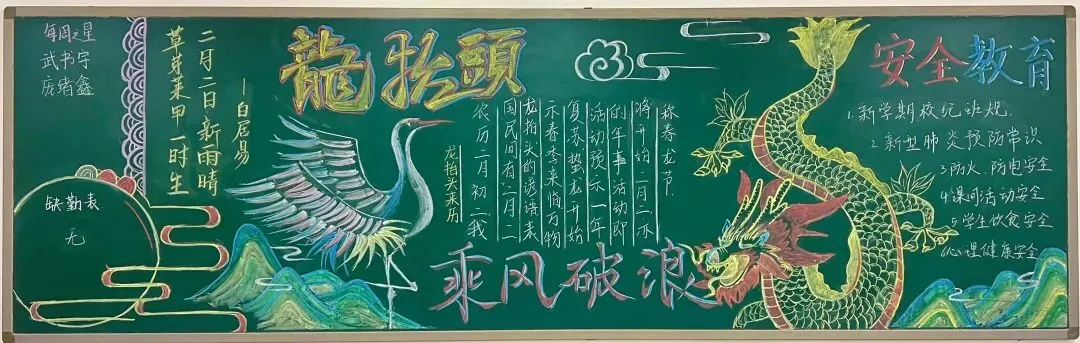 每周之星
武书宇
庞绪鑫
缺勤表
无
二月二日新雨晴
草芽菜甲一时生
—白居易
龍抬頭
龙抬头来历
农历二月初二我
国民间有“二月二
龙抬头的谚语表
示春季来临万物
复苏蛰龙开始
活动预示一年
的年事活动即
将开始二月二亦
称春龙节.
乘风破浪
安全教育
1.新学期校纪班规.
2 新型肺炎预防常识
3防火、防电安全
4课间活动安全
5学生饮食安全
6心理健康安全